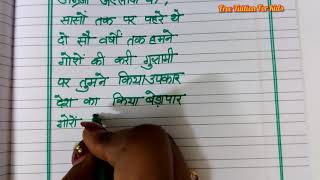 Free Tuition For Kids
सासों तक पर पहरे थे
दो सौ वर्षों तक हमने
गोरों की करी गुलामी
पर तुमने किया उपकार
देश का किया बेड़ापार
गोरों